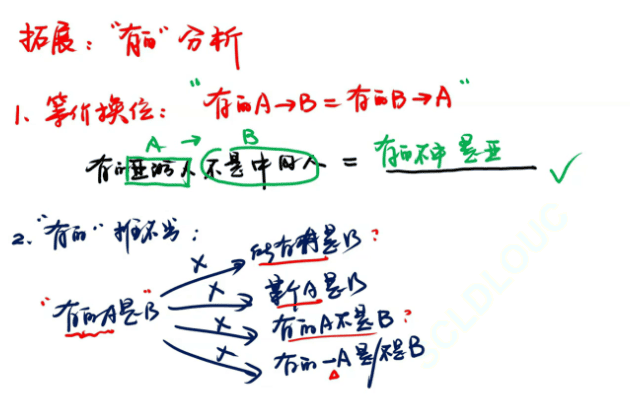 拓展："有的"分析
1、等价换位："有的A→B=有的B→A"
A → B
有的亚洲人不是中国人 = 有的不中是亚 ✓
2、"有的"推不出：
× 所有的是B?
× 某个A是B
"有的A是B"
× 有的A不是B?
× 有的一A是/不是B
CCLDLOUC